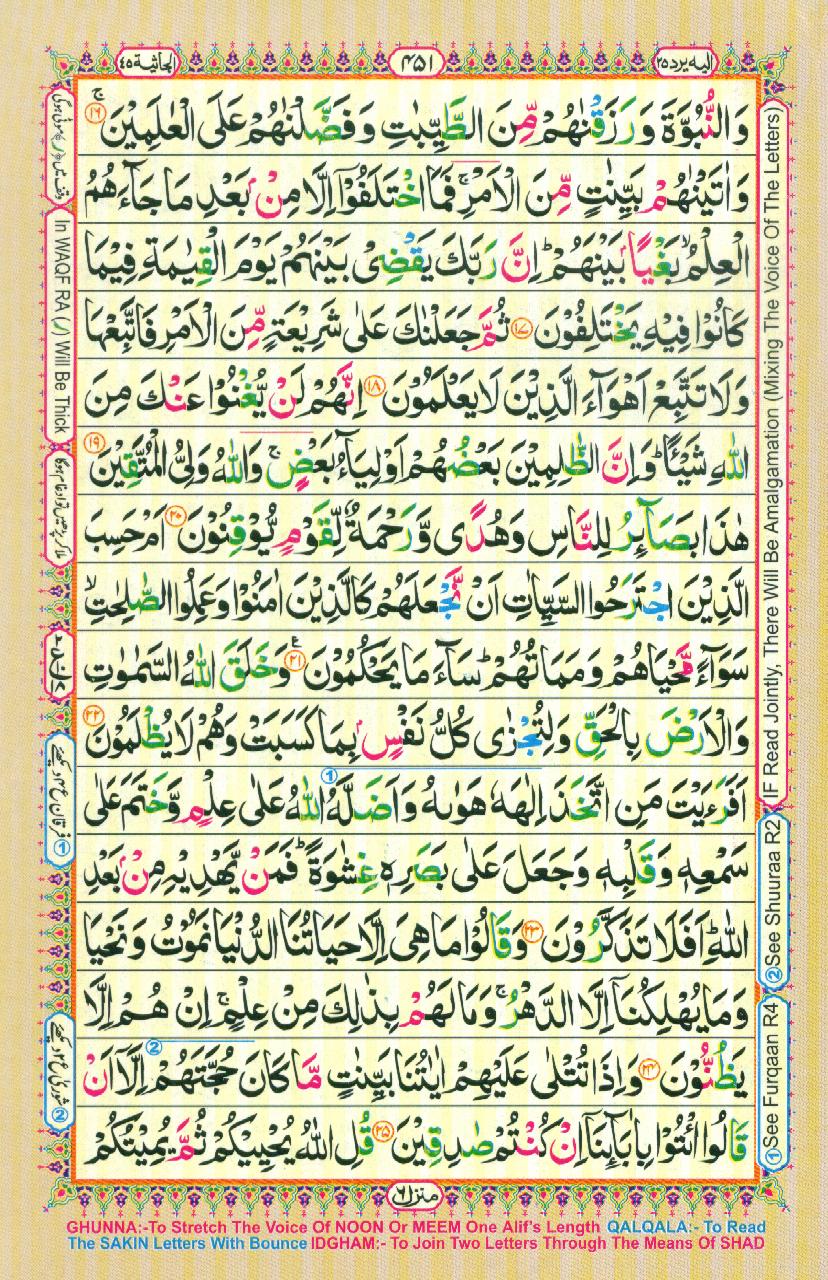 الیہ یرد ۲۵
۴۵۱
الجاثیۃ ۴۵
وَالنُّبُوَّةَ وَرَزَقْنٰهُمْ مِّنَ الطَّيِّبٰتِ وَفَضَّلْنٰهُمْ عَلَى الْعٰلَمِيْنَ ۚ ﴿۱۶﴾
وَاٰتَيْنٰهُمْ بَيِّنٰتٍ مِّنَ الْاَمْرِ ۚ فَمَا اخْتَلَفُوْۤا اِلَّا مِنْۢ بَعْدِ مَا جَآءَهُمُ
الْعِلْمُ ۙ بَغْيًاۢ بَيْنَهُمْ ؕ اِنَّ رَبَّكَ يَقْضِىْ بَيْنَهُمْ يَوْمَ الْقِيٰمَةِ فِيْمَا
كَانُوْا فِيْهِ يَخْتَلِفُوْنَ ﴿۱۷﴾ ثُمَّ جَعَلْنٰكَ عَلٰى شَرِيْعَةٍ مِّنَ الْاَمْرِ فَاتَّبِعْهَا
وَلَا تَتَّبِعْ اَهْوَآءَ الَّذِيْنَ لَا يَعْلَمُوْنَ ﴿۱۸﴾ اِنَّهُمْ لَنْ يُّغْنُوْا عَنْكَ مِنَ
اللّٰهِ شَيْـًٔا ؕ وَاِنَّ الظّٰلِمِيْنَ بَعْضُهُمْ اَوْلِيَآءُ بَعْضٍ ۚ وَاللّٰهُ وَلِىُّ الْمُتَّقِيْنَ ﴿۱۹﴾
هٰذَا بَصَآئِرُ لِلنَّاسِ وَهُدًى وَّرَحْمَةٌ لِّقَوْمٍ يُّوْقِنُوْنَ ﴿۲۰﴾ اَمْ حَسِبَ
الَّذِيْنَ اجْتَرَحُوا السَّيِّاٰتِ اَنْ نَّجْعَلَهُمْ كَالَّذِيْنَ اٰمَنُوْا وَعَمِلُوا الصّٰلِحٰتِ ۙ
سَوَآءً مَّحْيَاهُمْ وَمَمَاتُهُمْ ؕ سَآءَ مَا يَحْكُمُوْنَ ﴿۲۱﴾ وَخَلَقَ اللّٰهُ السَّمٰوٰتِ
وَالْاَرْضَ بِالْحَقِّ وَلِتُجْزٰى كُلُّ نَفْسٍۢ بِمَا كَسَبَتْ وَهُمْ لَا يُظْلَمُوْنَ ﴿۲۲﴾
اَفَرَءَيْتَ مَنِ اتَّخَذَ اِلٰهَهٗ هَوٰىهُ وَاَضَلَّهُ اللّٰهُ عَلٰى عِلْمٍ وَّخَتَمَ عَلٰى
سَمْعِهٖ وَقَلْبِهٖ وَجَعَلَ عَلٰى بَصَرِهٖ غِشٰوَةً ؕ فَمَنْ يَّهْدِيْهِ مِنْۢ بَعْدِ
اللّٰهِ ؕ اَفَلَا تَذَكَّرُوْنَ ﴿۲۳﴾ وَقَالُوْا مَا هِىَ اِلَّا حَيَاتُنَا الدُّنْيَا نَمُوْتُ وَنَحْيَا
وَمَا يُهْلِكُنَاۤ اِلَّا الدَّهْرُ ۚ وَمَا لَهُمْ بِذٰلِكَ مِنْ عِلْمٍ ۚ اِنْ هُمْ اِلَّا
يَظُنُّوْنَ ﴿۲۴﴾ وَاِذَا تُتْلٰى عَلَيْهِمْ اٰيٰتُنَا بَيِّنٰتٍ مَّا كَانَ حُجَّتَهُمْ اِلَّاۤ اَنْ
قَالُوا ائْتُوْا بِاٰبَآئِنَاۤ اِنْ كُنْتُمْ صٰدِقِيْنَ ﴿۲۵﴾ قُلِ اللّٰهُ يُحْيِيْكُمْ ثُمَّ يُمِيْتُكُمْ
منزل ۶
IF Read Jointly, There Will Be Amalgamation (Mixing The Voice Of The Letters)
② See Shuuraa R2
① See Furqaan R4
In WAQF RA (ر) Will Be Thick
①
②
GHUNNA:-To Stretch The Voice Of NOON Or MEEM One Alif's Length QALQALA:- To Read
The SAKIN Letters With Bounce IDGHAM:- To Join Two Letters Through The Means Of SHAD